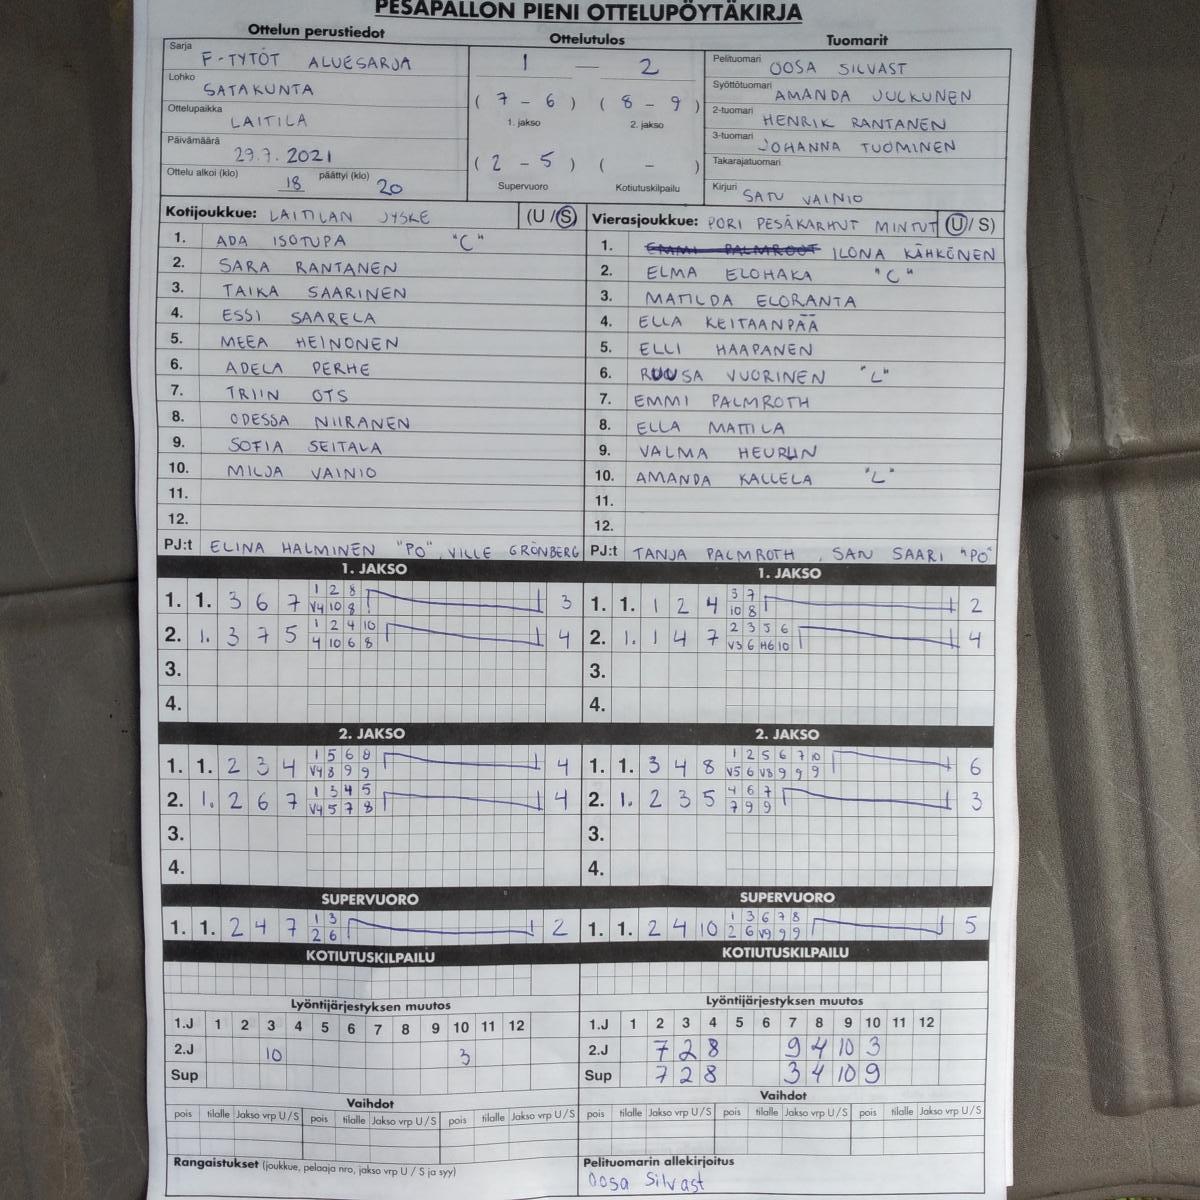 PESÄPALLON PIENI OTTELUPÖYTÄKIRJA
Ottelun perustiedot Ottelutulos Tuomarit
Sarja F-TYTÖT ALUESARJA
Lohko SATAKUNTA
Ottelupaikka LAITILA
Päivämäärä 29.7.2021
Ottelu alkoi (klo) 18 päättyi (klo) 20
1 — 2
( 7 - 6 ) ( 8 - 9 )
1. jakso 2. jakso
( 2 - 5 ) ( - )
Supervuoro Kotiutuskilpailu
Pelituomari OOSA SILVAST
Syöttötuomari AMANDA JULKUNEN
2-tuomari HENRIK RANTANEN
3-tuomari JOHANNA TUOMINEN
Takarajatuomari
Kirjuri SATU VAINIO
Kotijoukkue: LAITILAN JYSKE (U / S)
1. ADA ISOTUPA "C"
2. SARA RANTANEN
3. TAIKA SAARINEN
4. ESSI SAARELA
5. MEEA HEINONEN
6. ADELA PERHE
7. TRIIN OTS
8. ODESSA NIIRANEN
9. SOFIA SEITALA
10. MILJA VAINIO
11.
12.
PJ:t ELINA HALMINEN "PO", VILLE GRÖNBERG
Vierasjoukkue: PORI PESÄKARHUT MINTUT (U / S)
1. EMMI PALMROOT ILONA KÄHKÖNEN
2. ELMA ELOHAKA "C"
3. MATILDA ELORANTA
4. ELLA KEITAANPÄÄ
5. ELLI HAAPANEN
6. RUUSA VUORINEN "L"
7. EMMI PALMROTH
8. ELLA MATTILA
9. VALMA HEURLIN
10. AMANDA KALLELA "L"
11.
12.
PJ:t TANJA PALMROTH, SAN SAARI "PO"
1. JAKSO 1. JAKSO
1. 1. 3 6 7 1 2 8 3
V4 10 8
2. 1. 3 7 5 1 2 4 10 4
4 10 6 8
3.
4.
1. 1. 1 2 4 3 7 2
10 8
2. 1. 1 4 7 2 3 5 6 4
V3 6 H6 10
3.
4.
2. JAKSO 2. JAKSO
1. 1. 2 3 4 1 5 6 8 4
V4 8 9 9
2. 1. 2 6 7 1 3 4 5 4
V4 5 7 8
3.
4.
1. 1. 3 4 8 1 2 5 6 7 10 6
V5 6 V8 9 9 9
2. 1. 2 3 5 4 6 7 3
7 9 9
3.
4.
SUPERVUORO SUPERVUORO
1. 1. 2 4 7 1 3 2
2 6
1. 1. 2 4 10 1 3 6 7 8 5
2 6 V9 9 9
KOTIUTUSKILPAILU KOTIUTUSKILPAILU
Lyöntijärjestyksen muutos
1.J 1 2 3 4 5 6 7 8 9 10 11 12
2.J 10 3
Sup
Lyöntijärjestyksen muutos
1.J 1 2 3 4 5 6 7 8 9 10 11 12
2.J 7 2 8 9 4 10 3
Sup 7 2 8 3 4 10 9
Vaihdot
pois tilalle Jakso vrp U / S pois tilalle Jakso vrp U / S pois tilalle Jakso vrp U / S
Vaihdot
pois tilalle Jakso vrp U / S pois tilalle Jakso vrp U / S pois tilalle Jakso vrp U / S
Rangaistukset (joukkue, pelaaja nro, jakso vrp U / S ja syy)
Pelituomarin allekirjoitus
Oosa Silvast